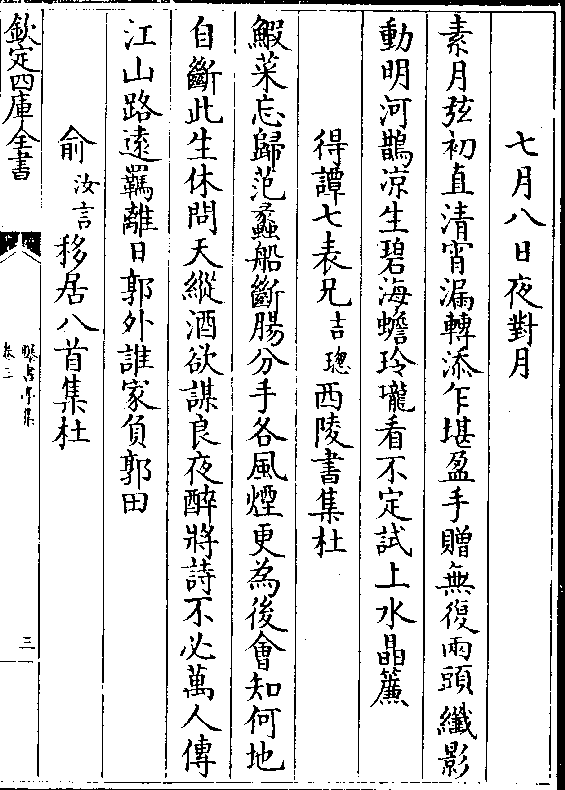 七月八日夜對月
素月弦初直清宵漏轉添乍堪盈手贈無復兩頭纖影
動明河鵲凉生碧海蟾玲瓏看不定試上水晶簾
得譚七表兄吉璁西陵書集杜
鰕菜忘歸范蠡船斷腸分手各風煙更為後會知何地
自斷此生休問天縱酒欲謀良夜醉將詩不必萬人傳
江山路遠羈離日郭外誰家負郭田
俞汝言移居八首集杜
欽定四庫全書
曝書亭集
卷三
三